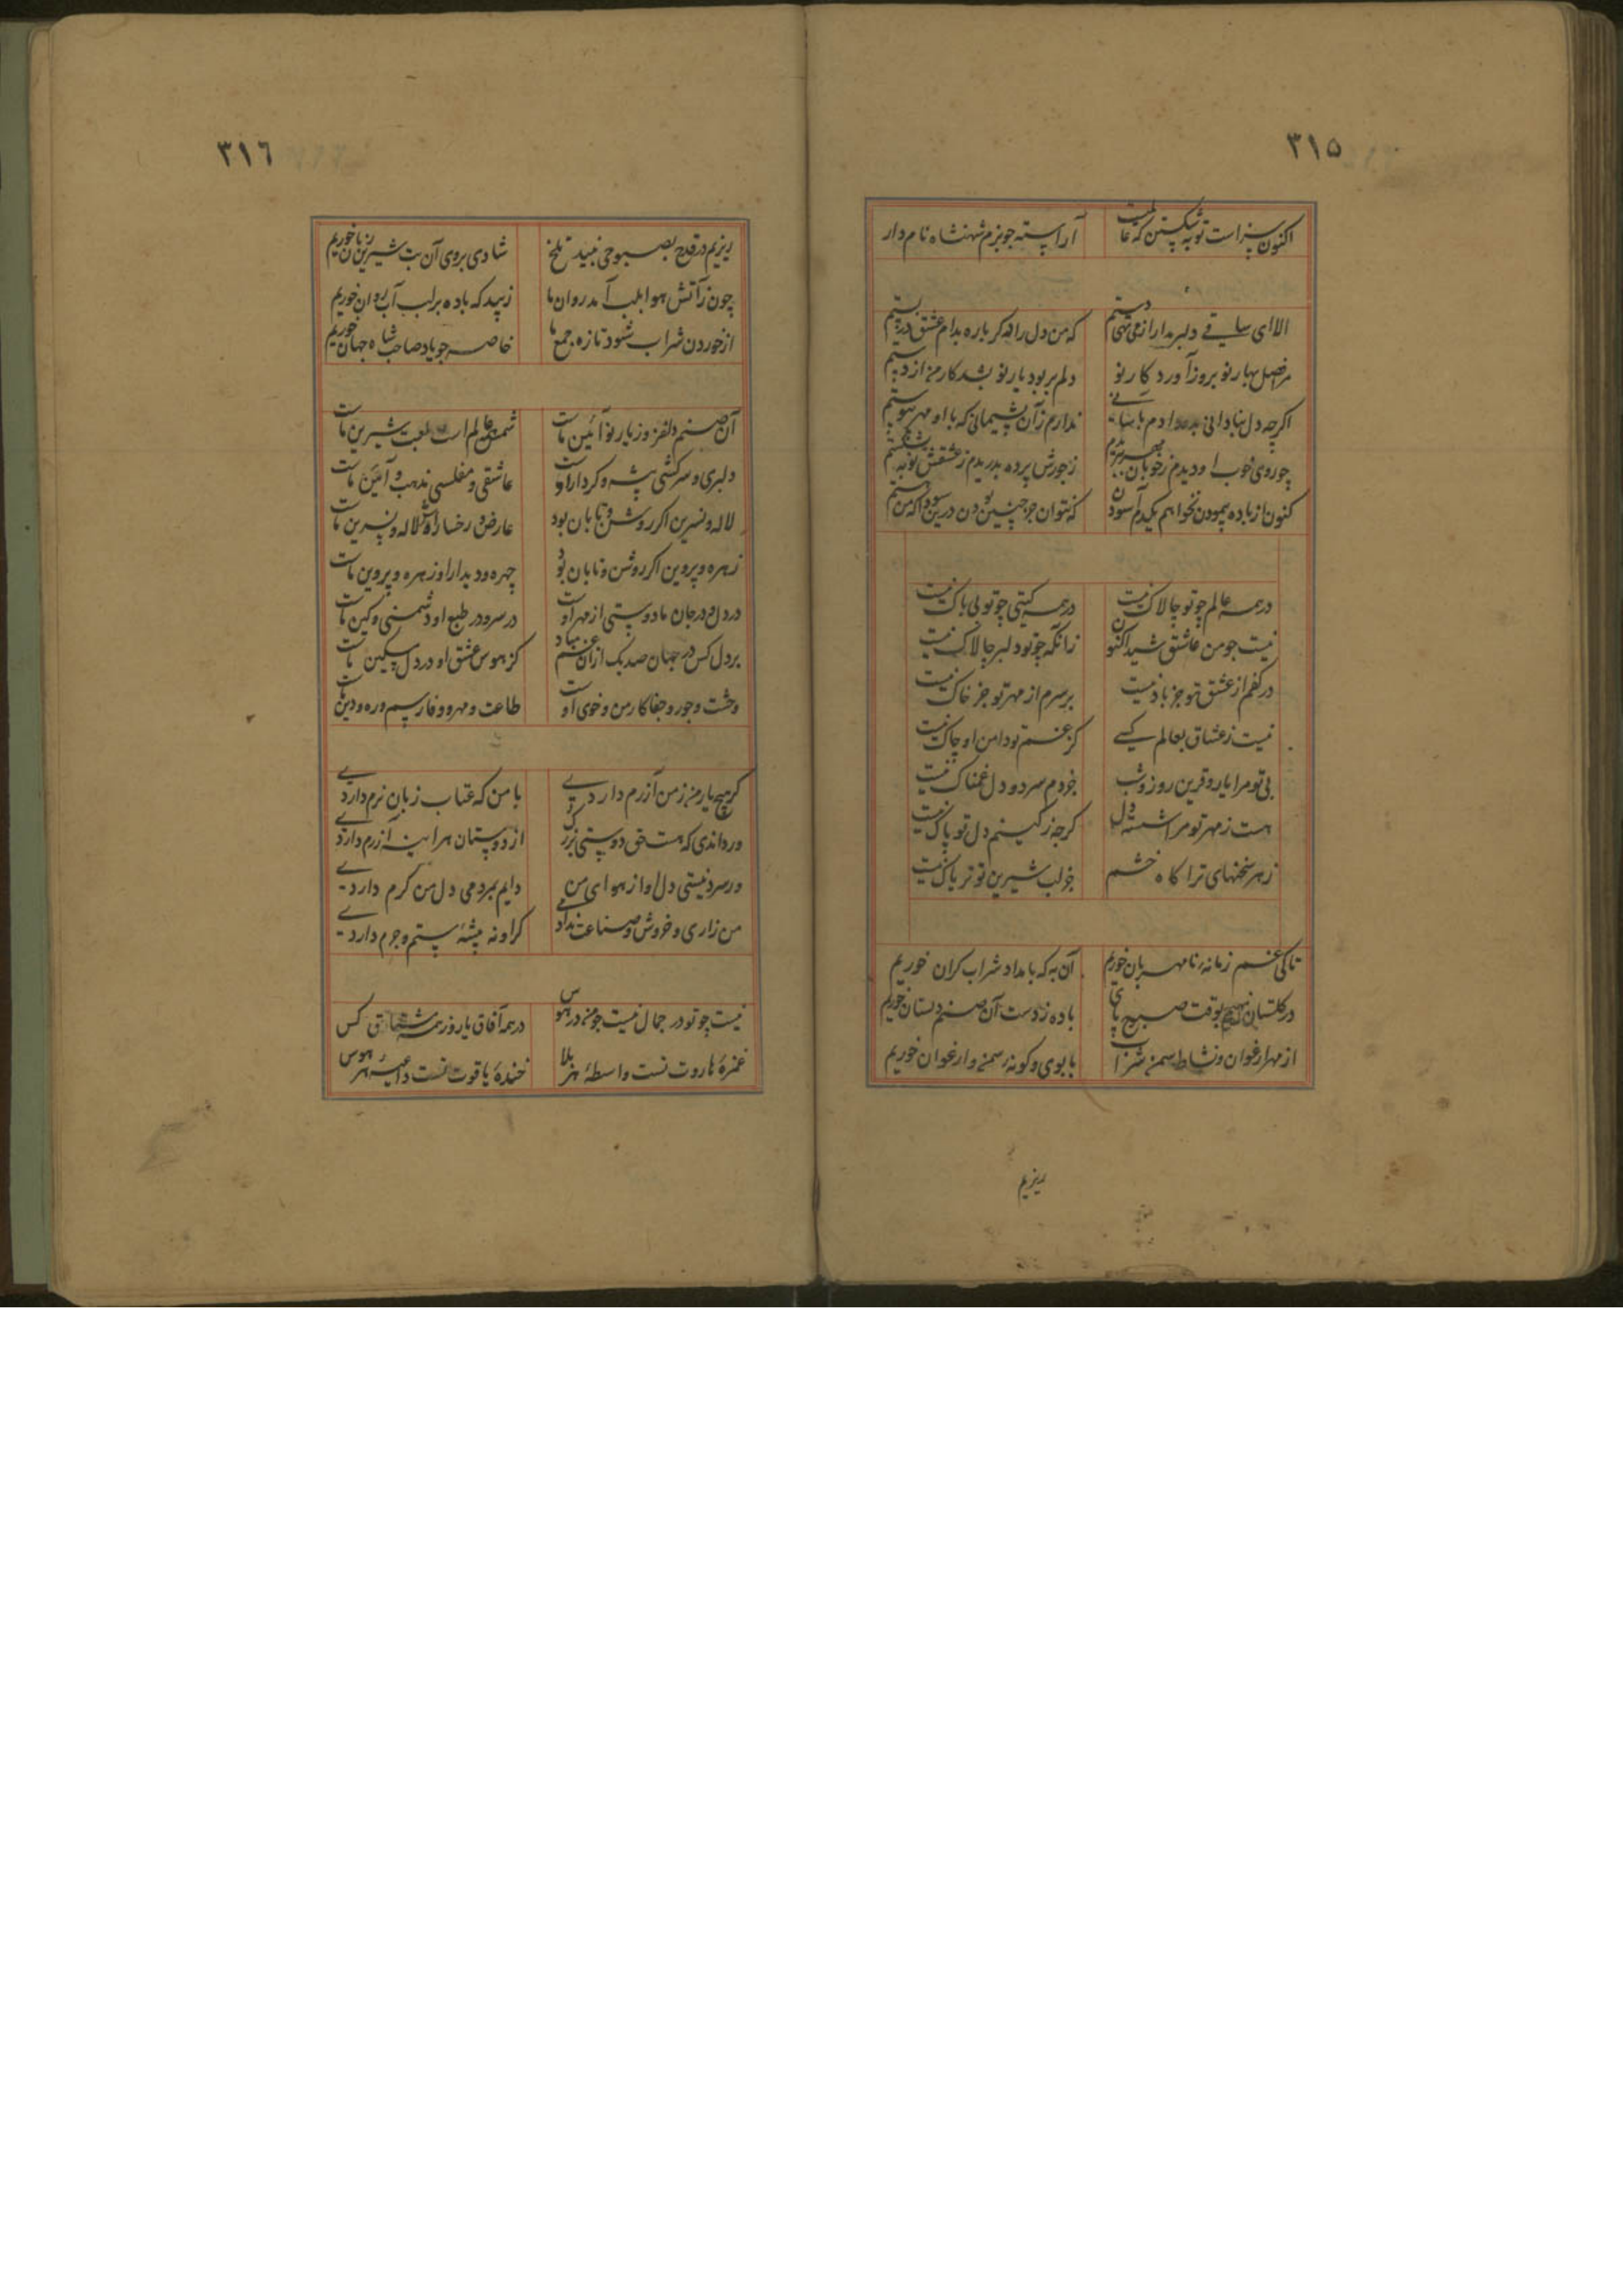 ٣١٥
اکنون سزاست توبه شکستن که عالمست آراسته چو بزم شهنشاه نامدار
الا ای ساقی دلبر مدار از می تهی دستم که من دل را دگرباره بدام عشق دربستم
مرا فصل بهار نو بروز آورد کار نو دلم بربود یار نو بشد کار من از دستم
اگرچه دل بنادانی بدو دادم بآسانی ندارم زآن پشیمانی که با او مهر پیوستم
چو روی خوب او دیدم ز خوبان مهر ببریدم ز جورش پرده بدریدم ز عشقش توبه بشکستم
کنون از باده پیمودن نخواهم یکدم آسودن که نتوان جز چنین بودن درین سودا که من هستم
در همه عالم چو تو چالاک نیست در همه گیتی چو تو بی باک نیست
نیست چو من عاشق شیدا کنون زانکه چو تو دلبر چالاک نیست
در کفم از عشق تو جز باد نیست بر سرم از مهر تو جز خاک نیست
نیست ز عشاق بعالم کسی کز غم تو دامن او چاک نیست
بی تو مرا یار و قرین روز و شب جز دم سرد و دل غمناک نیست
هست ز مهر تو مرا شسته دل گرچه ز کینم دل تو پاک نیست
زهر سخنهای ترا گاه خشم جز لب شیرین تو تریاک نیست
تا کی غم زمانه نامهربان خوریم آن به که بامداد شراب گران خوریم
در گلستان بوقت صبح پای باده ز دست آن صنم دلستان خوریم
از مهر ارغوان و نشاط سمن شراب با بوی و گونه سمن و ارغوان خوریم
ریزیم
٣١٦
ریزیم در قدح بصبوحی نبید تلخ شادی بروی آن بت شیرین زبان خوریم
چون زآتش هوا بلب آمد روان ما زیبد که باده برلب آب روان خوریم
از خوردن شراب شود تازه جمع ما خاصه چو یاد صاحب شاه جهان خوریم
آن صنم دلفروز یار نوآئین ماست شمع عالم است لعبت شیرین ماست
دلبری و سرکشی پیشه و کردار اوست عاشقی و مفلسی مذهب و آئین ماست
لاله و نسرین اگر روشن و تابان بود عارض و رخسار اوش لاله و نسرین ماست
زهره و پروین اگر روشن و تابان بود چهره و دیدار او زهره و پروین ماست
در دل و در جان ما دوستی از مهر اوست در سر و در طبع او دشمنی و کین ماست
بر دل کس در جهان صدیک ازان غم مباد کز هوس عشق او در دل مسکین ماست
وحشت و جور و جفا کار من و خوی اوست طاعت و مهر و وفا رسم و ره و دین ماست
گر هیچ یار من ز من آزرم داردی با من که عتاب زبان نرم داردی
ور داندی که هست حق دوستی بزرگ از دوستان هر آینه آزرم داردی
ور سرد نیستی دل او از هوای من دایم بمردمی دل من گرم داردی
من زاری و خروش و صناعت ندارمی گر او نه پیشه ستم و جرم داردی
نیست چو تو در جمال نیست چو من در هوس در همه آفاق یار وز همه عشاق کس
غمزه هاروت تست واسطه هر بلا خنده یاقوت تست داعیه هر هوس